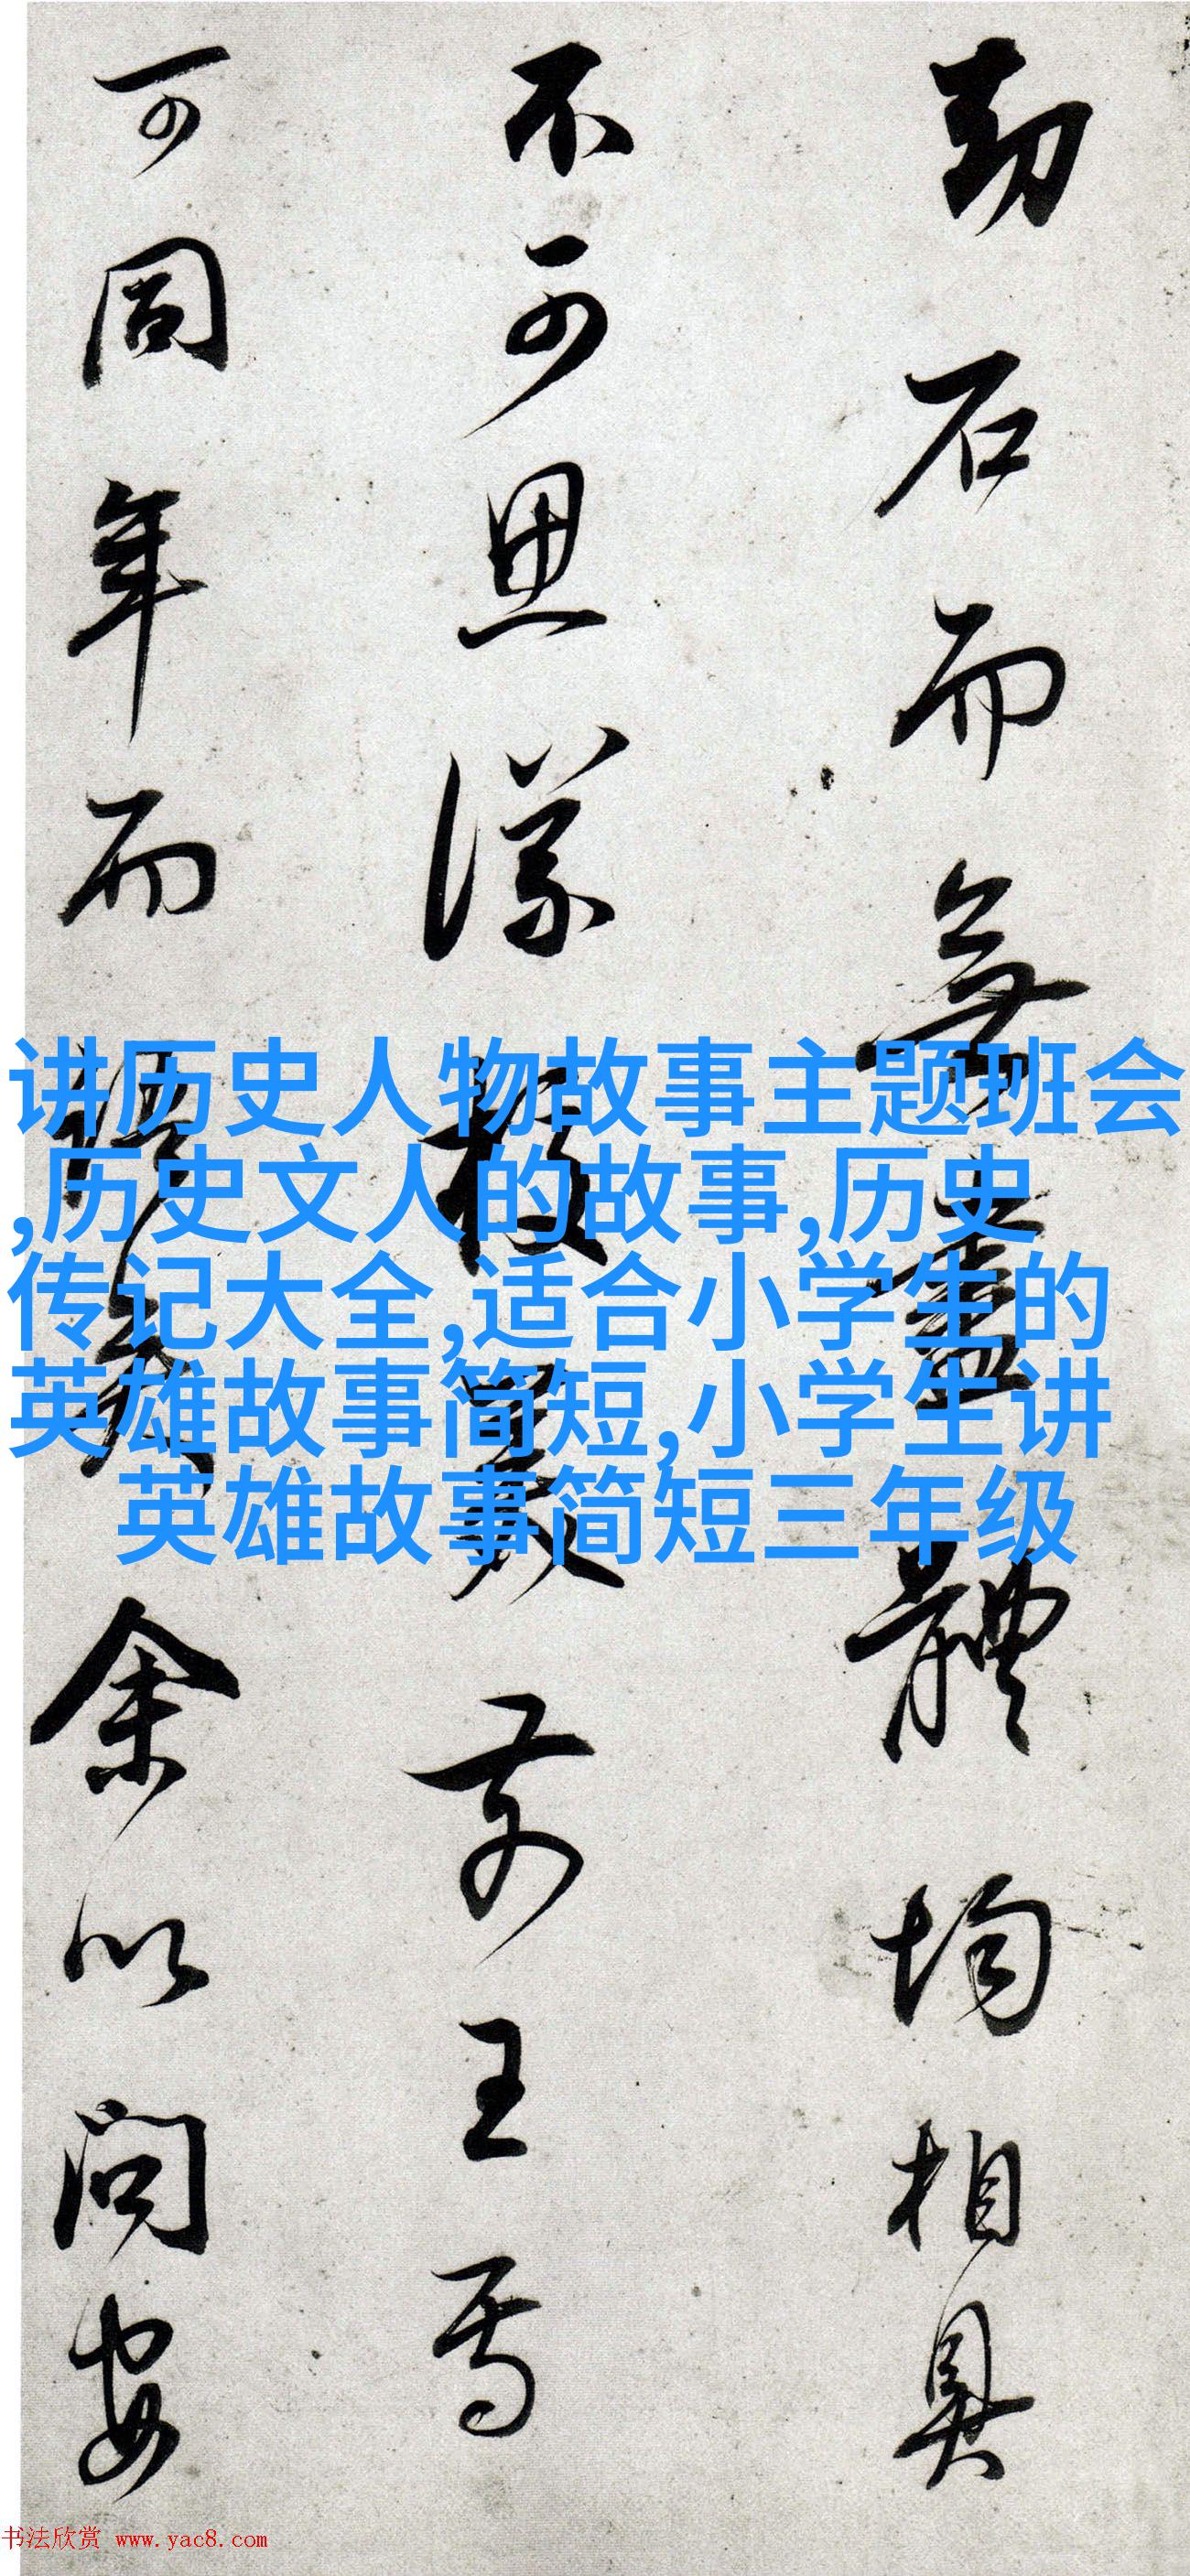 劫石而無盡體均相具
不可思議校前王焉
可同年而語矣余以問安
讲历史人物故事主题班会
,历史文人的故事,历史
传记大全,适合小学生的
英雄故事简短,小学生讲
英雄故事简短三年级
书法欣赏 www.yac8.com